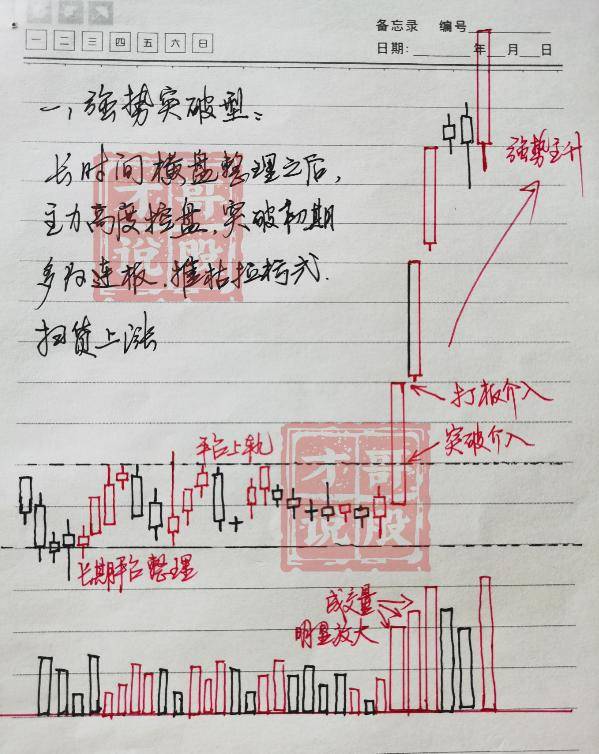 备忘录 编号
一 二 三 四 五 六 日
日期： 年 月 日
一、强势突破型：
长时间横盘整理之后，
主力高度控盘，突破初期
多为连板，摧枯拉朽式
扫货上涨
强势主升
打板介入
突破介入
平台上轨
长期平台整理
成交量
明显放大
才哥
说股
才哥
说股